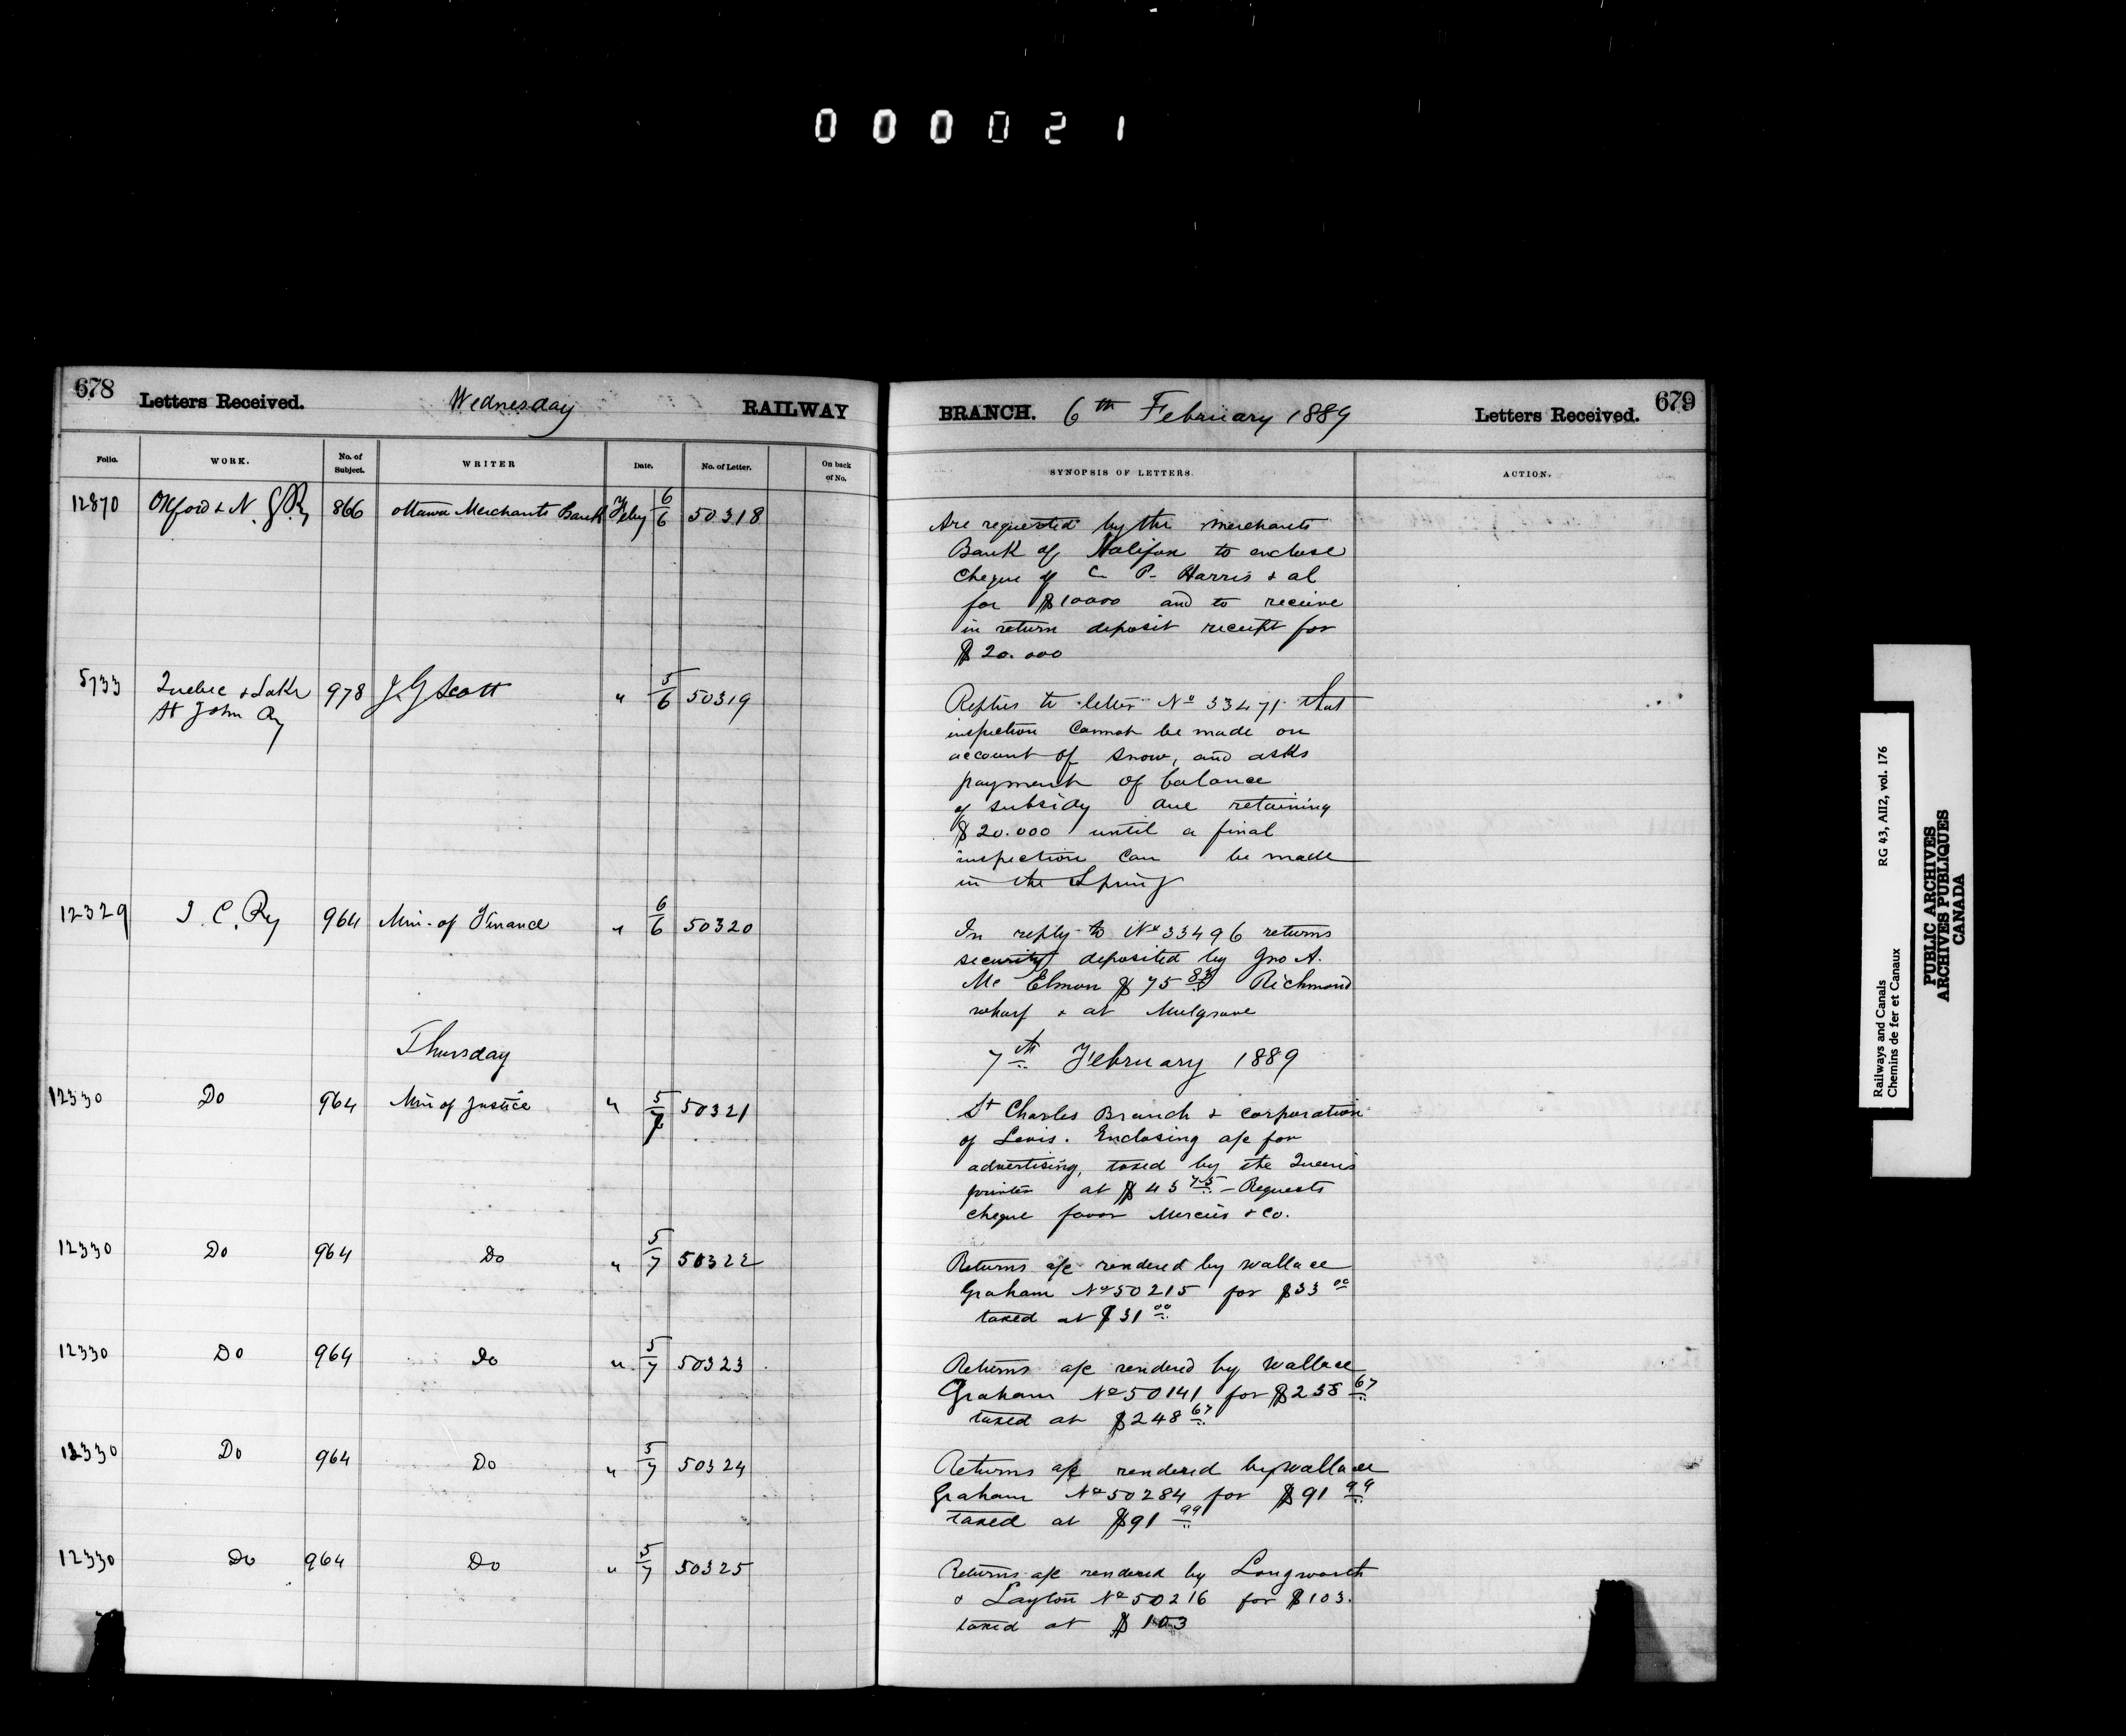 000021
678 Letters Received. Wednesday RAILWAY
Folio. WORK. No. of Subject. WRITER Date. No. of Letter. On back of No.
12870 Oxford & N. G Ry 866 Ottawa Merchants Bank Feby 6/6 50318
5733 Quebec & Lake 978 J. G Scott " 5/6 50319
St John Ry
12329 I. C. Ry 964 Min. of Finance " 6/6 50320
Thursday
12330 Do 964 Min of Justice " 5/7 50321
12330 Do 964 Do " 5/7 50322
12330 Do 964 Do " 5/7 50323
12330 Do 964 Do " 5/7 50324
12330 Do 964 Do " 5/7 50325
BRANCH. 6th February 1889 Letters Received. 679
SYNOPSIS OF LETTERS. ACTION.
Are requested by the Merchants
Bank of Halifax to enclose
cheque of C. P. Harris & al
for $10000 and to receive
in return deposit receipt for
$20.000
Replies to letter No 33471 that
inspection cannot be made on
account of snow, and asks
payment of balance
of subsidy due retaining
$20.000 until a final
inspection can be made
in the Spring
In reply to No 33496 returns
security deposited by Jno A.
Mc Elmon $75 83 Richmond
wharf & at Mulgrave
7th February 1889
St Charles Branch & corporation
of Levis. Enclosing a/c for
advertising, taxed by the Queen's
printer at $43 75 - Requests
cheque favor Mercier & Co.
Returns a/c rendered by Wallace
Graham No 50215 for $33 00
taxed at $31 00
Returns a/c rendered by Wallace
Graham No 50141 for $258 67
taxed at $248 67
Returns a/c rendered by Wallace
Graham No 50284 for $91 99
taxed at $91 99
Returns a/c rendered by Longworth
& Layton No 50216 for $103.
taxed at $103
Railways and Canals RG 43, AII2, vol. 176
Chemins de fer et Canaux
PUBLIC ARCHIVES
ARCHIVES PUBLIQUES
CANADA